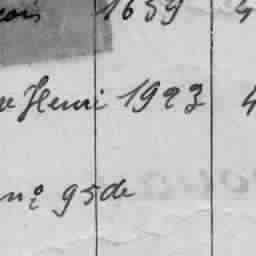 çois 1659 4
se Henri 1923 4
nº 95 de